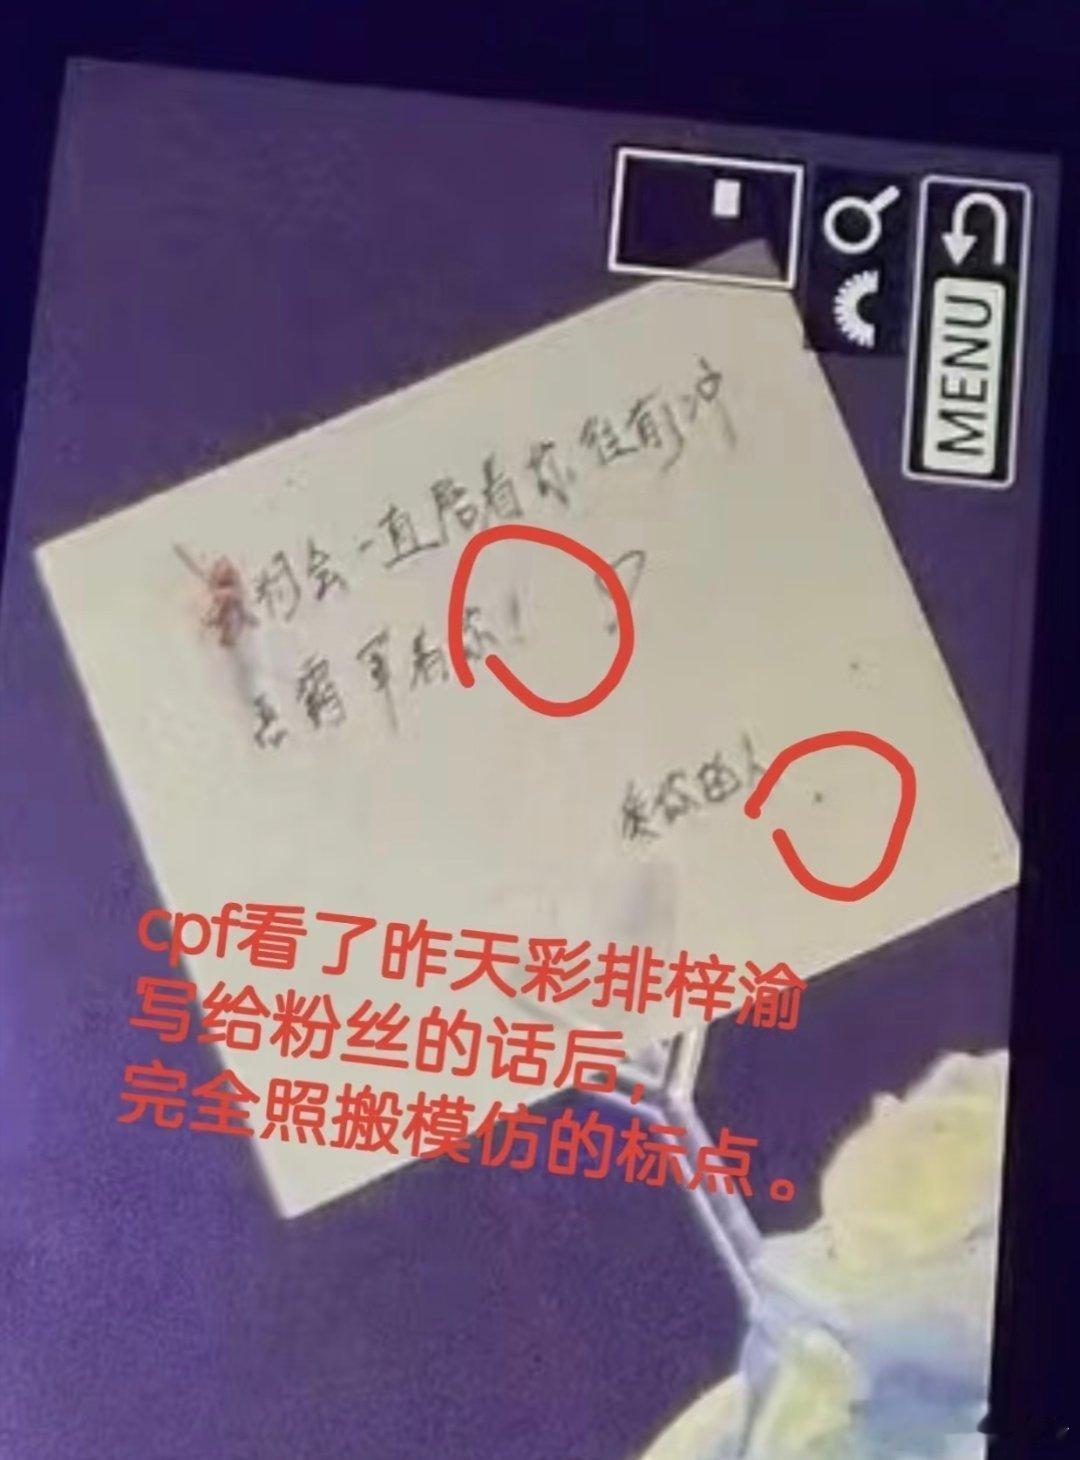 MENU
我们会一直陪着你往前冲
恶霸罩着你!
爱你的人
cpf看了昨天彩排梓渝
写给粉丝的话后,
完全照搬模仿的标点。